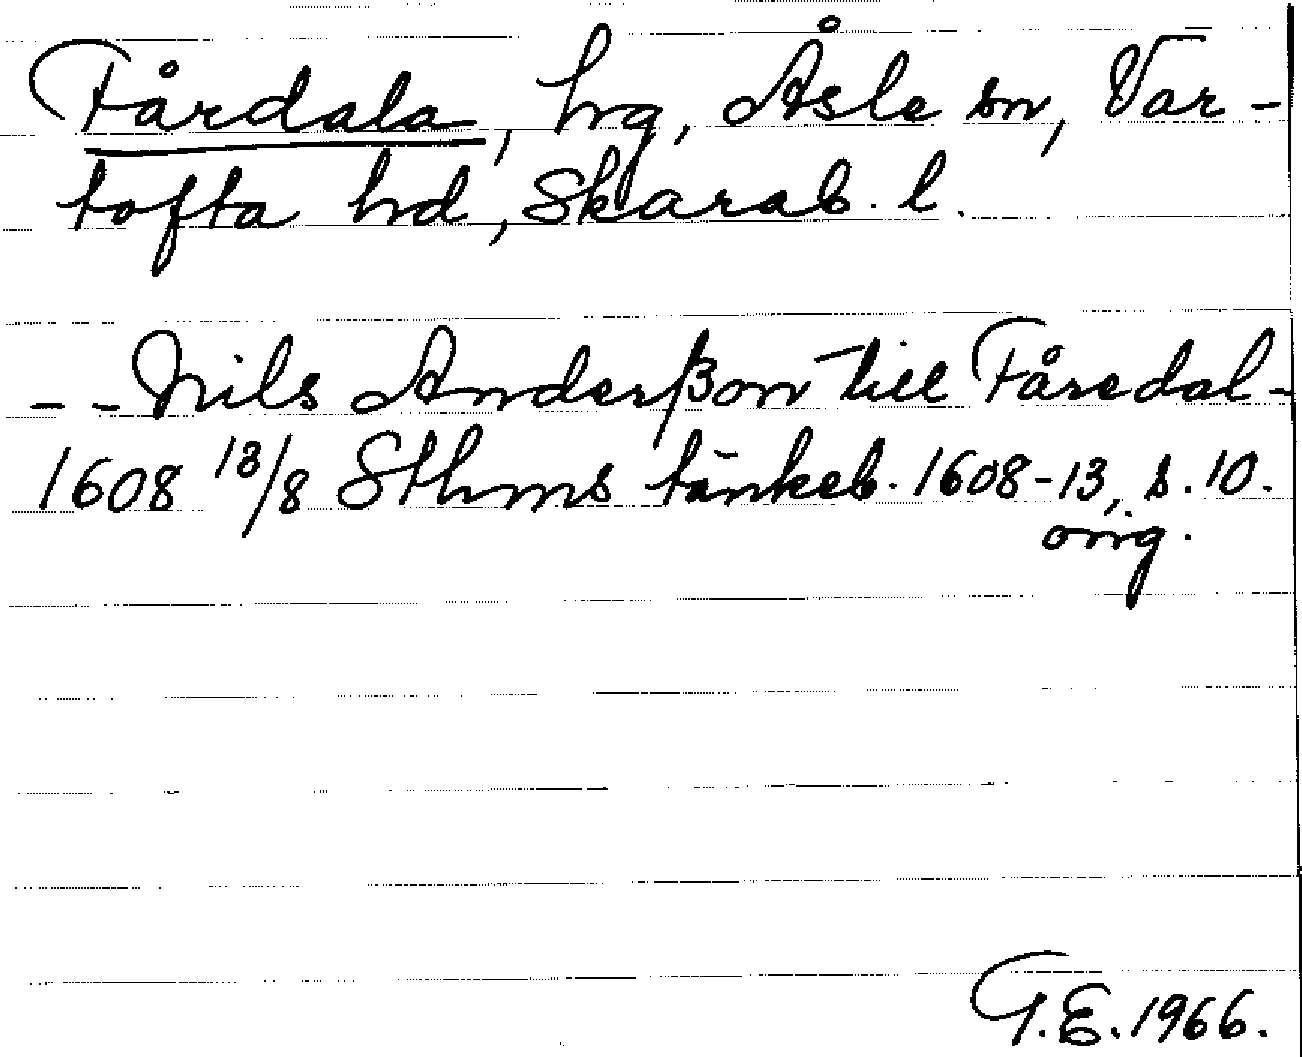 Fårdala, hrg, Åsle sn, Var-
tofta hd, Skarab. l.
- - Nils Anderßon till Fåredal -
1608 13/8 Sthms tänkeb. 1608-13, s. 10.
orig.
G.E. 1966.